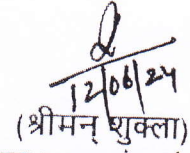 12/06/24
(श्रीमन् शुक्ला)